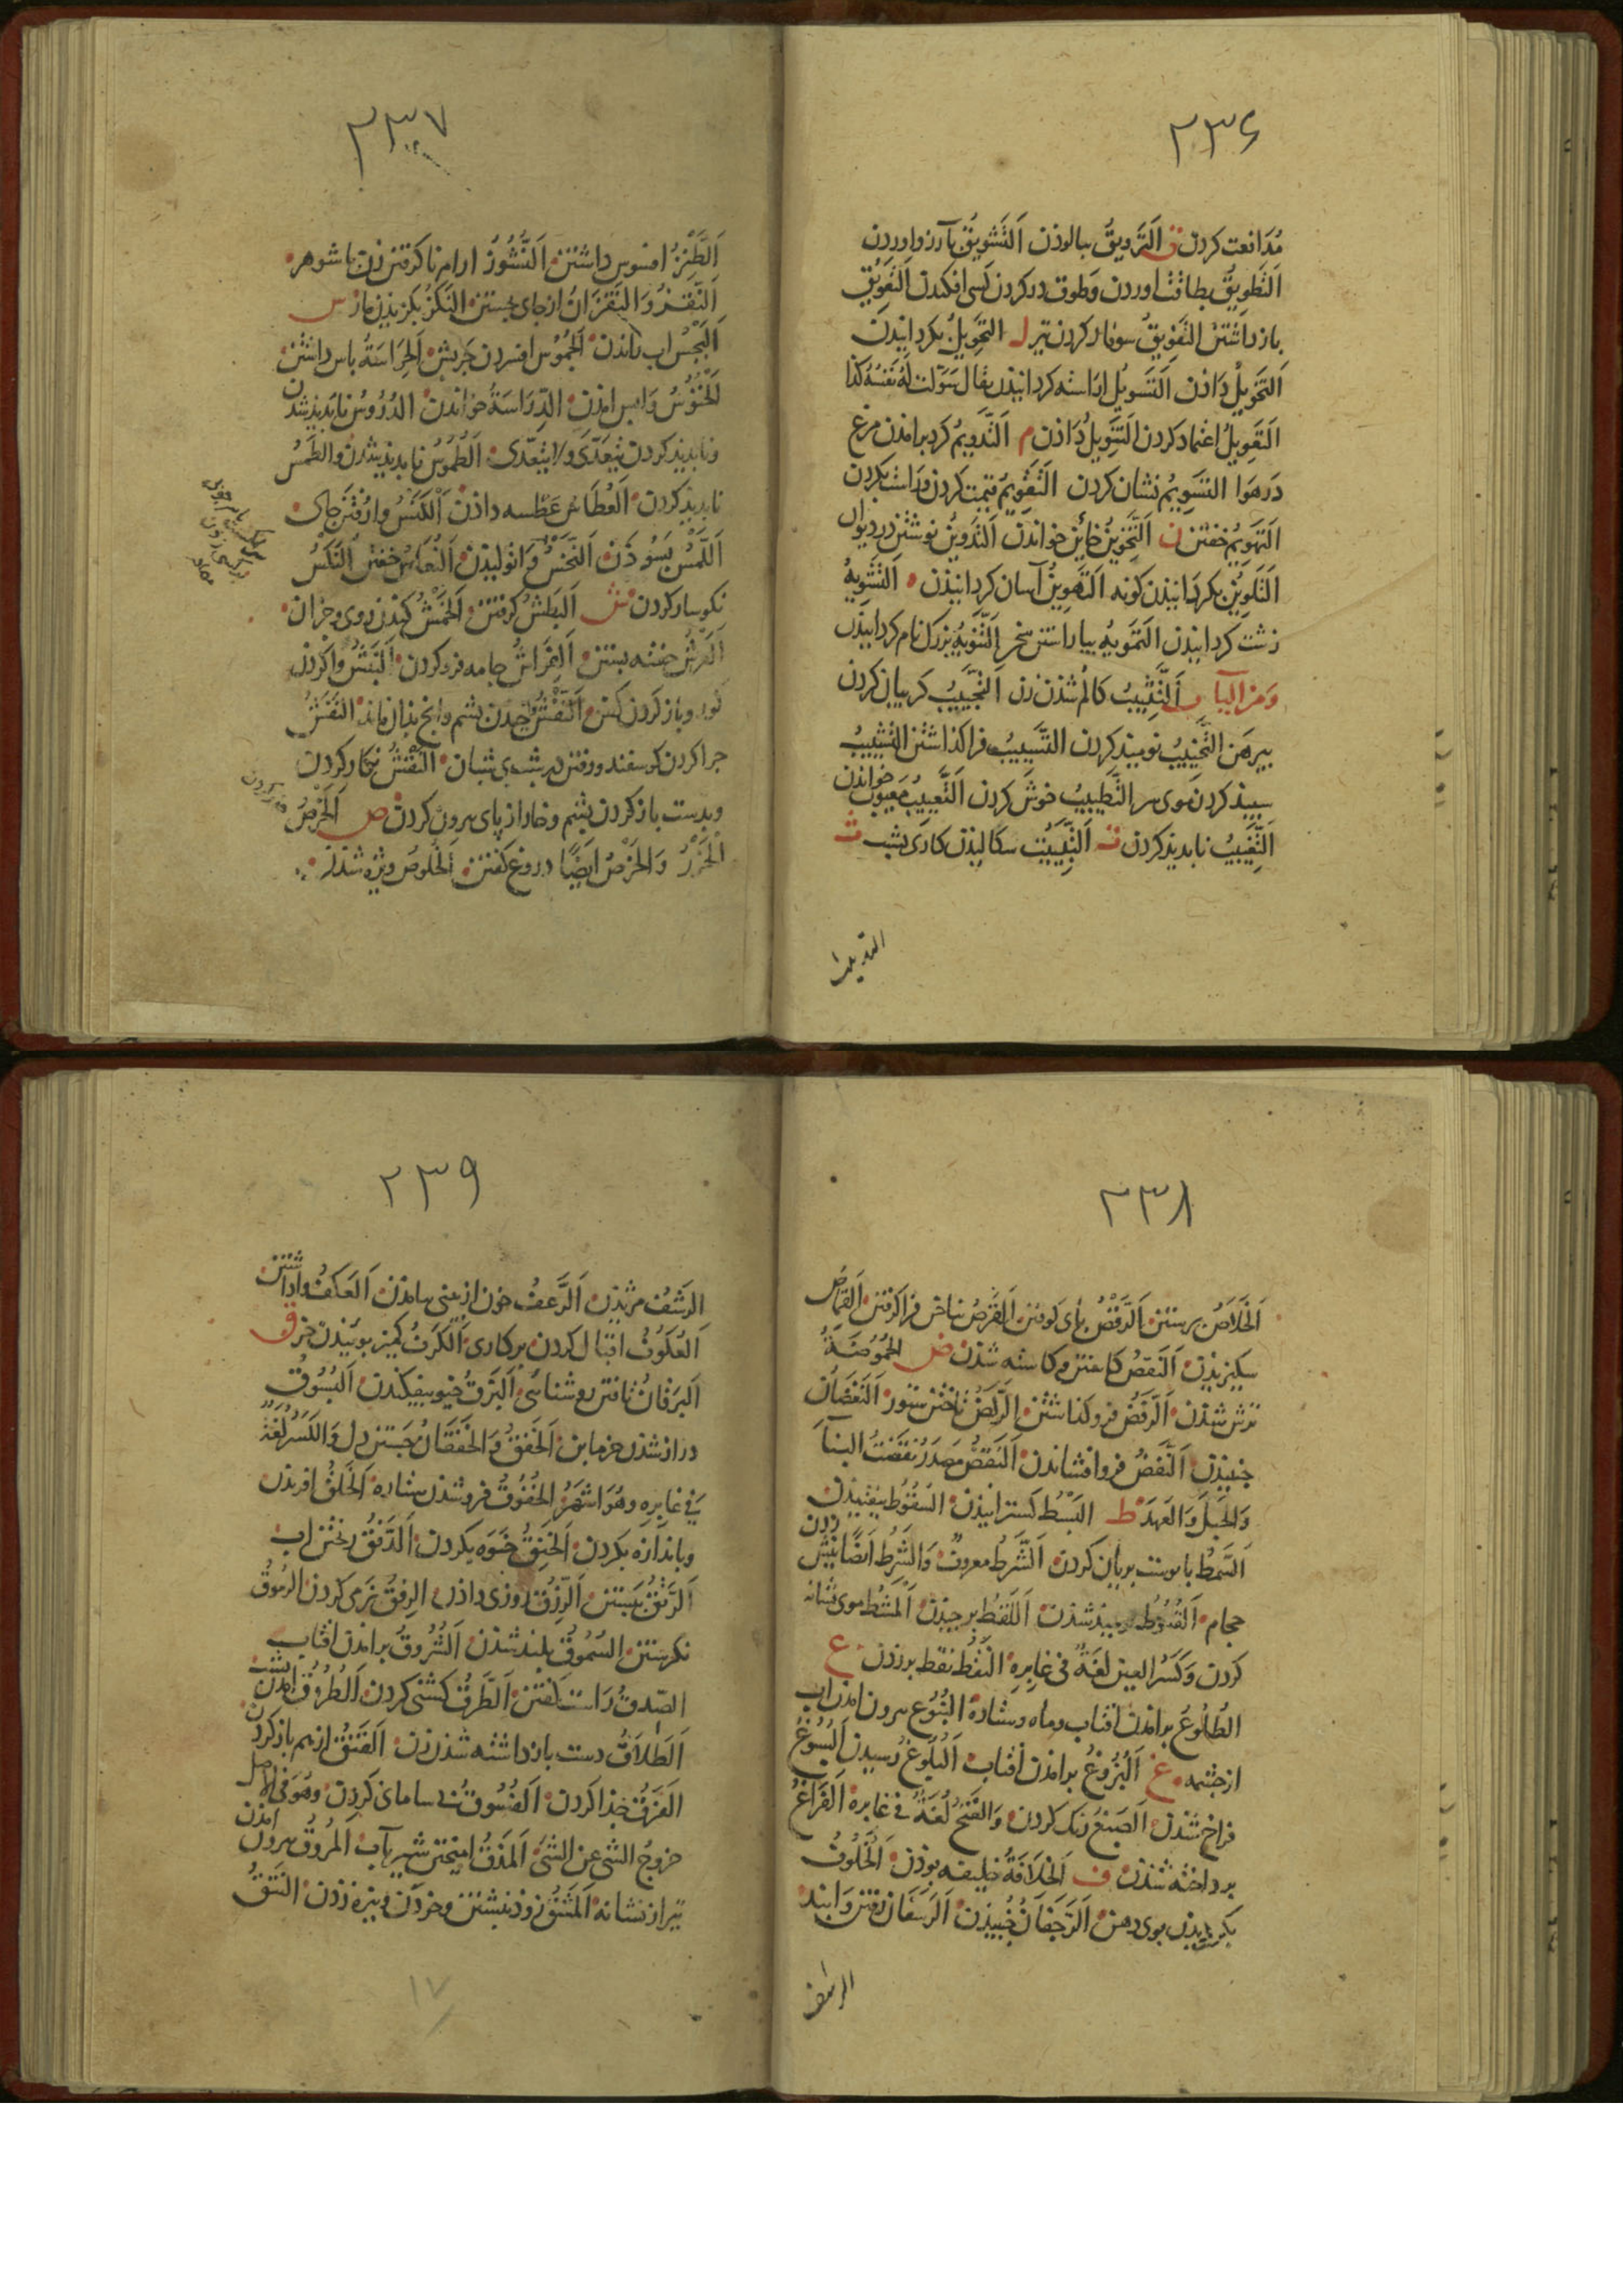 ٢٣۶
مُدَافعت کردن ق اَلتَّروِیقُ ببالوذن اَلتَّشوِیقُ بآرزو اوردن
اَلتَّطوِیقُ بطاقت اوردن وَطوق درکردن کسی افکندن اَلتَّعوِیقُ
بازداشتن التَّفوِیقُ سوفار کردن تیر ل التَّحوِیلُ بکردانیدن
اَلتَّخوِیلُ دَاذن اَلتَّسوِیلُ اراسته کردانیذن یقال سَوّلت لَهُ نَفسُهُ کذا
التَّعوِیلُ اعتماد کردن التَّنوِیلُ دَاذن م اَلتَّدوِیمُ کرد برامذن مرغ
دَرهَوا التسَوِیمُ نشان کردن التَّقوِیمُ قیمت کردن وَراست بکردن
اَلتَّهوِیمُ خفتن ن اَلتَّخوِینُ خائن خواندن اَلتَّدوِینُ نوشتن در دیوان
اَلتَّلوِینُ بکردانیذن کونه اَلتَّهوِینُ آسان کردانیذن ه اَلتَّشوِیهُ
زشت کردانیدن التَّموِیهُ بیاراستن سخن اَلتَّنوِیهُ بزرک نام کردانیذن
وَمن الیآء ب اَلتَّثیِیبُ کالم شذن زن اَلتَّجیِیبُ کریبان کردن
بیرهَن التَّخیِیبُ نومیذ کردن التَّسیِیبُ فراکذاشتن التَّشیِیبُ
سپیذ کردن موی سر التَّطیِیبُ خوش کردن اَلتَّعیِیبُ معیوب خواندن
اَلتَّغیِیبُ نابدیذ کردن ت اَلتَّبیِیتُ سکالیذن کاری بشب ث
٢٣٧
اَلطَّنزُ افسوس داشتن اَلنُّشُوزُ ارام ناکرفتن زن باشوهر
اَلنَّقزُ وَالنَّقَزَانُ از جای بجستن النَّکزُ بکزیذن مار س
اَلبَجسُ اب راندن اَلجُمُوسُ افسردن جربش اَلحِرَاسَةُ باس داشتن
اَلخُنُوسُ وَابس امذن الدِّرَاسَةُ خواندن الدُرُوسُ نابدیذ شدن
ونابدیذ کردن یتَعَدّی وَلا یتَعَدّی اَلطُّمُوسُ نابدیذ شذن والطَمسُ
نابدیذ کردن اَلعُطَاسُ عَطسه داذن اَلکَنسُ وارُفتن جای
اَللَّمسُ بَسُوذن اَلنَّخسُ وَانولیذن اَلنُّعَاسُ خفتن اَلنَّکسُ
نکوسار کردن ش اَلبَطشُ کرفتن اَلخَمشُ کندن روی و جزان
اَلعَرشُ جفته بستن اَلفِرَاشُ جامه فروکردن اَلنَّبشُ واکردن
کور وباز کردن کفن اَلنَّفشُ واجیدن بشم وانج بذان ماند النَّفشُ
جرا کردن کوسفند ورفتن در شب بی شبان اَلنَّقشُ نکار کردن
وبدست باز کردن بشم وخار از پای بیرون کردن ص اَلخَرصُ
الحَزرُ وَالخَرصُ ایضًا دروغ کفتن اَلخُلوصُ ویژه شذن
٢٣٨
اَلخَلَاصُ برستن اَلرَّقصُ بای کوفتن اَلقَرصُ بناخن فرا کرفتن اَلقِمَاصُ
سکیزیذن اَلنَقصُ کاهتن و کاسته شذن ض الحُمُوضَةُ
ترش شذن اَلرَّفضُ فروکذاشتن اَلرَّکضُ تاختن ستور اَلنَّغَضَانُ
جنبیذن اَلنَّفضُ فروافشاندن اَلنَّقضُ مَصدَرُ نَقَضتُ البنآءَ
وَالحَبلَ وَالعَهدَ ط البَسْطُ کسترانیذن السُقُوطُ بیفتیذن
السَّمطُ باپوست بریان کردن اَلشَّرطُ معروفٌ وَالشَّرطُ اَیضًا نیش زدن
حجام اَلقُنُوطُ نومیذ شذن اَللَقطُ برجیذن اَلمَشطُ موی بشانه
کردن وَکَسرُ العین لُغَةٌ فی غابِرِهِ النَّفطُ نقط برزدن ع
الطُلُوعُ برامذن افتاب وماه وستاره النُّبُوعُ بیرون امذن اب
از جشمه غ اَلبُزُوغُ برامذن افتاب اَلبُلُوغُ رسیدن اَلسُبُوغُ
فراخ شذن اَلصَبغُ رنک کردن وَالفَتحُ لُغَةٌ فی غابره اَلفَرَاغُ
برداخته شذن ف اَلخِلَافَةُ خلیفه بوذن اَلخُلُوفُ
بکردیذن بوی دهن اَلرَّجَفَانُ جُنبیذن اَلرَسَفَان رفتن وابند
الرشف
٢٣٩
الرَشفُ مزیذن اَلرَّعفُ خون از بینی بیامذن اَلعَکفُ واداشتن
اَلعُکُوفُ اقبال کردن بر کاری اَلکَرفُ کمیز بوییدن خر ق
اَلبَرَقانُ تافتن روشنائی اَلبَزقُ خیو بیفکندن اَلبُسُوقُ
دراز شذن خرمابن اَلخَفقُ وَالخَفَقَانُ جَستن دل وَالکَسرُ لُغَةٌ
فی غابِرِه وهُوَ اشهَرُ الخُفُوقُ فرو شذن ستاره اَلخَلقُ افریذن
وباندازه بکردن اَلخَنِقُ خَبَوه بکردن اَلدَّفقُ ریختن اب
اَلرَّتقُ ببَستن اَلرَّزقُ روزی داذن الرِفقُ نرمی کردن الرُموقُ
نکرستن السُمُوقُ بلند شذن اَلشُّرُوقُ برامذن افتاب
الصّدقُ راست کفتن اَلطَّرقُ کشنی کردن اَلطُرُوقُ بشب امدن
اَلطَلَاقُ دست بازداشته شذن زن اَلفَتقُ ازهم باز کردن
اَلفَرقُ جذا کردن اَلفُسُوقُ بی سامانی کردن وهُوَ فی الاصل
خروجُ الشئ عن الشئ اَلمَذقُ امیختن شیر بآب اَلمُرُوقُ بیرون امذن
تیر از نشانه اَلمَشقُ زوذ نبشتن وخردن ونیزه زدن النَتقُ
١٧